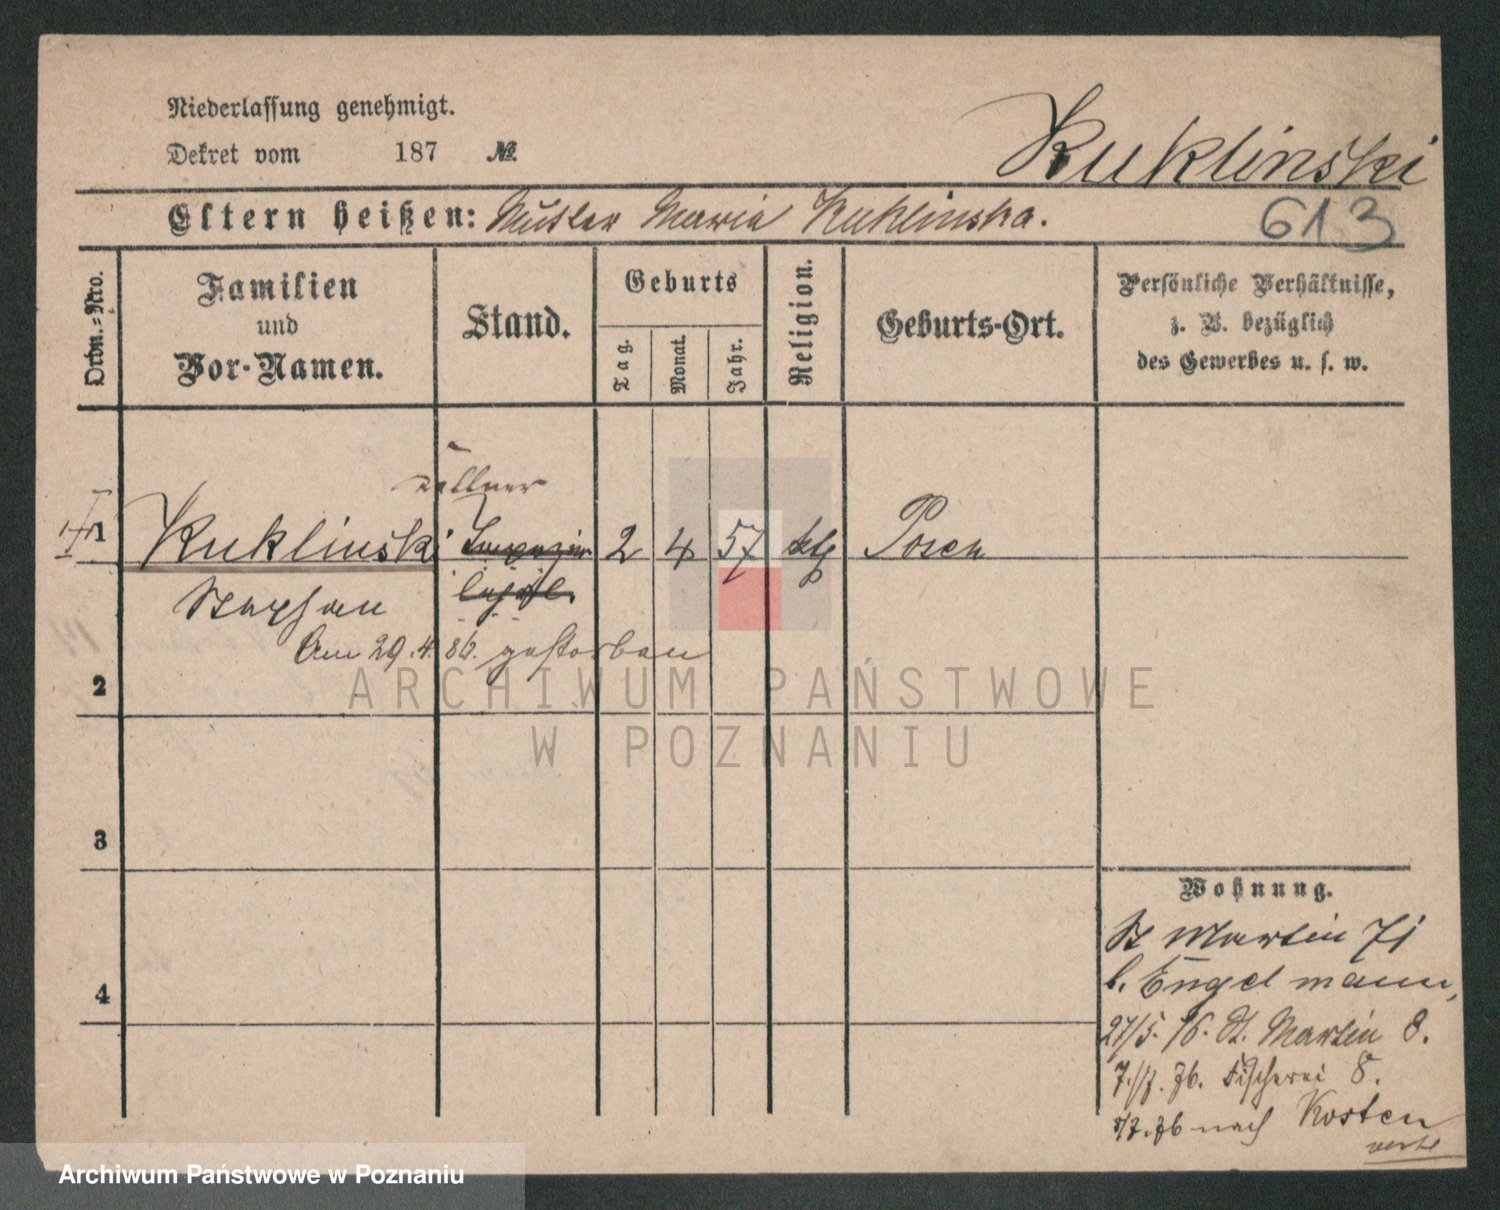 Niederlassung genehmigt.
Dekret vom 187 №
Kuklinski
Eltern heißen: Mutter Maria Kuklinska.
613
Ordn.-Nro.
Familien
und
Vor-Namen.
Stand.
Geburts
Tag.
Monat.
Jahr.
Religion.
Geburts-Ort.
Persönliche Verhältnisse,
z. B. bezüglich
des Gewerbes u. s. w.
Kellner
1 Kuklinski 2 4 57 ktl Posen
Stephan
Am 29.4.86. gestorben
2
3
4
Wohnung.
St Martin 71
b. Engelmann,
27/5. 76. St. Martin 8.
7./7. 76. Fischerei 8.
nach Kosten
verte
ARCHIWUM PAŃSTWOWE
W POZNANIU
Archiwum Państwowe w Poznaniu